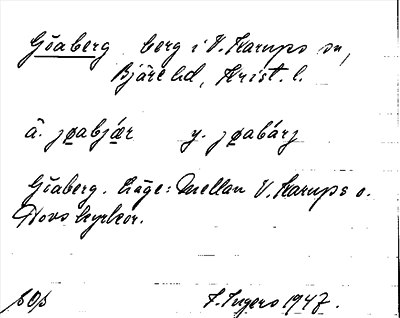 Göaberg berg i V. Karups sn,
Bjäre hd, Krist. l.
ä. jøabjær y. jøabárj
Göaberg. Läge: Mellan V. Karups o.
Hovs kyrkor.
F. Ingers 1947.